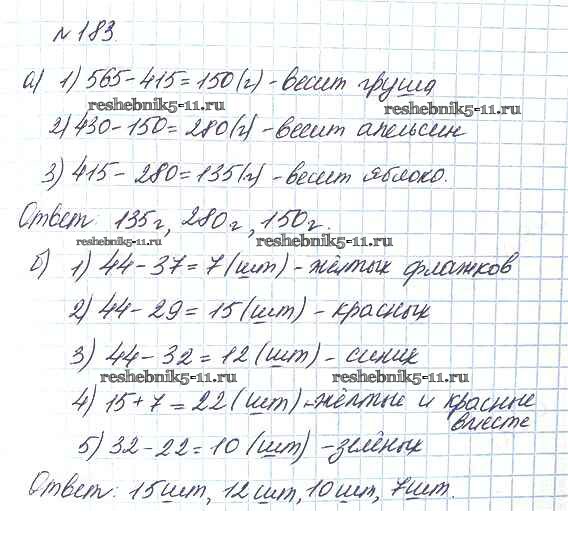 № 183.
а) 1) 565 - 415 = 150 (г) - весит груша
reshebnik5-11.ru reshebnik5-11.ru
2) 430 - 150 = 280 (г) - весит апельсин
3) 415 - 280 = 135 (г) - весит яблоко.
Ответ: 135 г, 280 г, 150 г.
reshebnik5-11.ru reshebnik5-11.ru
б) 1) 44 - 37 = 7 (шт) - жёлтых флажков
2) 44 - 29 = 15 (шт) - красных
3) 44 - 32 = 12 (шт) - синих
reshebnik5-11.ru reshebnik5-11.ru
4) 15 + 7 = 22 (шт) - жёлтые и красные
вместе
5) 32 - 22 = 10 (шт) - зелёных
Ответ: 15 шт, 12 шт, 10 шт, 7 шт.